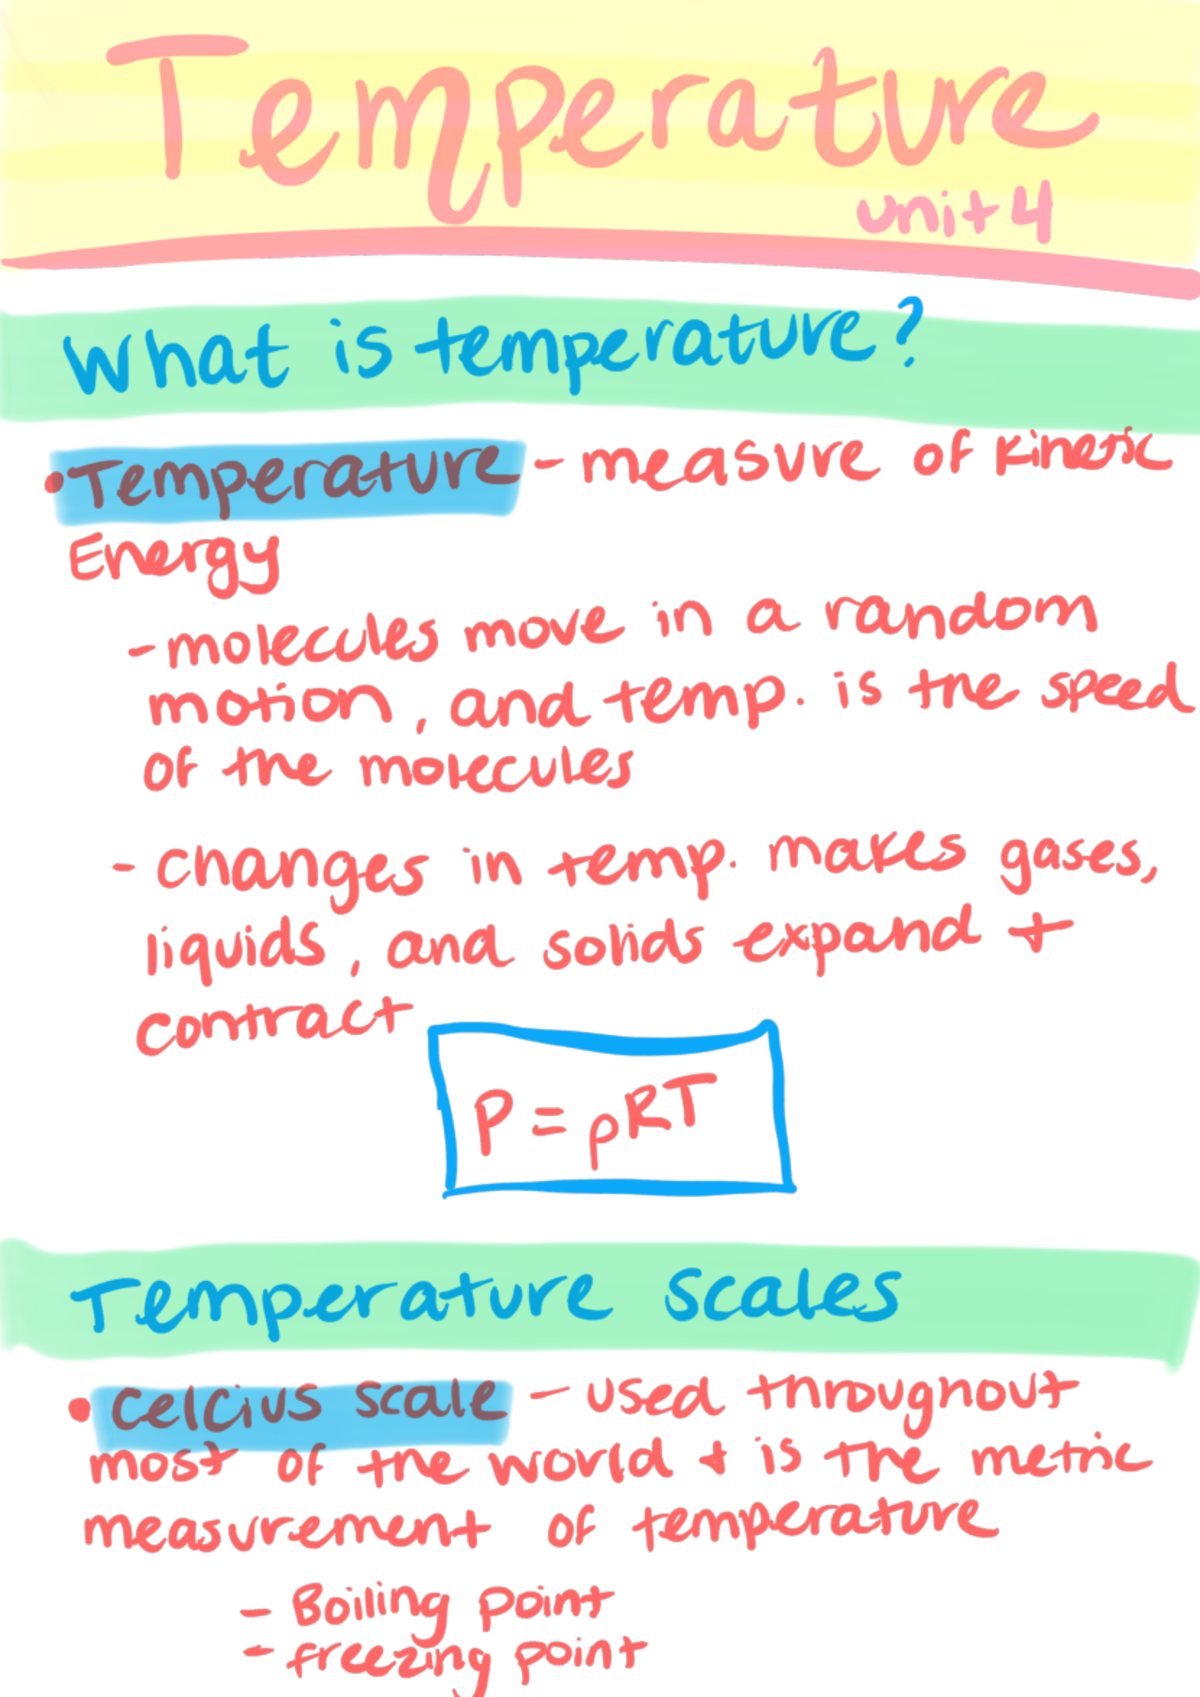 Temperature
unit 4
What is temperature?
•Temperature - measure of kinetic
Energy
- molecules move in a random
motion, and temp. is the speed
of the molecules
- changes in temp. makes gases,
liquids, and solids expand +
contract
P = ρRT
Temperature scales
• Celcius scale - used throughout
most of the world + is the metric
measurement of temperature
- Boiling point
- freezing point